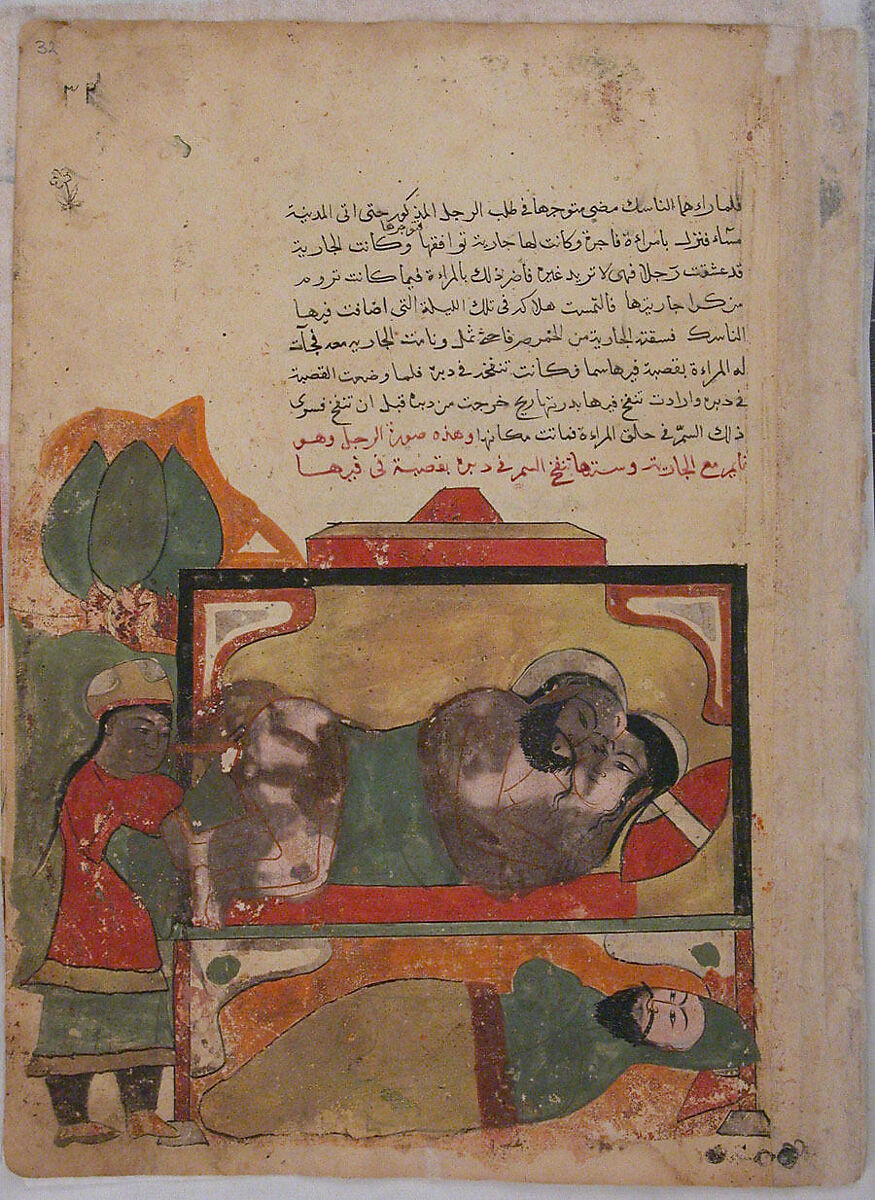 32
٣٢
فلما راءهما الناسك مضى متوجها في طلب الرجل المذكور حتى اتى المدينة
مساء فنزل بامراءة فاجرة وكانت لها جارية توافقها وكانت الجارية
قد عشقت رجلا فهى لا تريد غيره فأضر ذلك بالمراءة فيما كانت تروم
من كرا جاريتها فالتمست هلاكه في تلك الليلة التي اضافت فيها
الناسك فسقته الجارية من الخمر صرفا حتى ثمل ونامت الجارية معه فجآت
له المراءة بقصبة فيها سما وكانت تنفخه في دبره فلما وضعت القصبة
في دبره وارادت تنفخ فيها بدرتها ريح خرجت من دبره قبل ان تنفخ فسرى
ذلك السمّ في حلق المراءة فماتت مكانها وهذه صورة الرجل وهو
نايم مع الجارية وستها تنفخ السم في دبره بقصبة في فيها